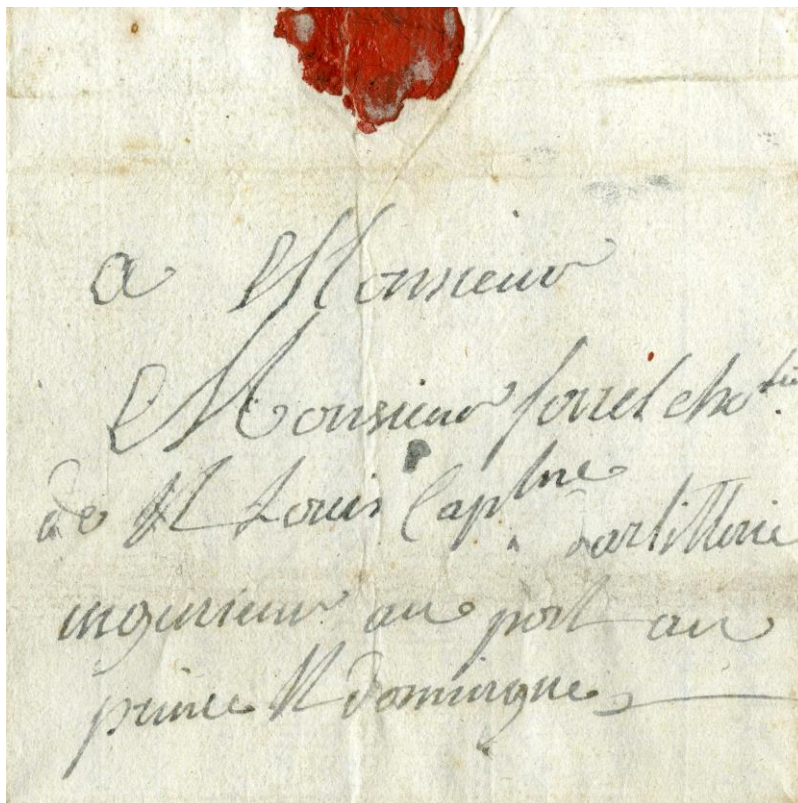 a Monsieur
Monsieur sorrel che.lier
de St Louis Capne
dartillerie
ingenieur au port au
prince St domingue